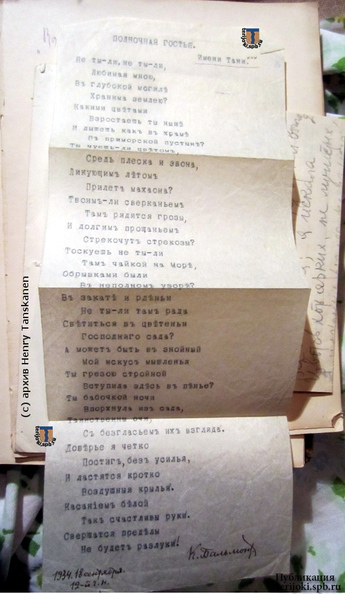 ПОЛНОЧНАЯ ГОСТЬЯ.
Имени Тани.
Не ты-ли, не ты-ли,
Любимая мною,
Въ глубокой могилѣ
Хранима землею?
Какими цвѣтами
Выростаешь ты нынѣ
И дышишь какъ въ храмѣ
Въ приморской пустынѣ?
Средь плеска и звона,
Ликующимъ лѣтомъ
Твоимъ-ли сверканьемъ
Тамъ рядятся грозы,
И долгимъ прощаньемъ
Стрекочутъ стрекозы?
Тоскуешь не ты-ли
Тамъ чайкой на морѣ,
Обрывками были
Въ неполномъ узорѣ?
Въ закатѣ и рдѣньи
Не ты-ли тамъ рада
Свѣтиться въ цвѣтеньи
Господняго сада?
А можетъ быть въ знойный
Мой искусъ мышленья
Ты грезою стройной
Вступила здѣсь въ пѣнье?
Ты бабочкой ночи
Впорхнула изъ сада,
Съ безгласьемъ ихъ взгляда.
Довѣрье я четко
Постигъ, безъ усилья,
И ластятся кротко
Воздушныя крылья.
Касаніемъ бѣлой
Такъ счастливы руки.
Свершатся предѣлы
Не будетъ разлуки!
К. Бальмонтъ
1934. 18 сентября.
(c) архив Henry Tanskanen
Публикация
terijoki.spb.ru